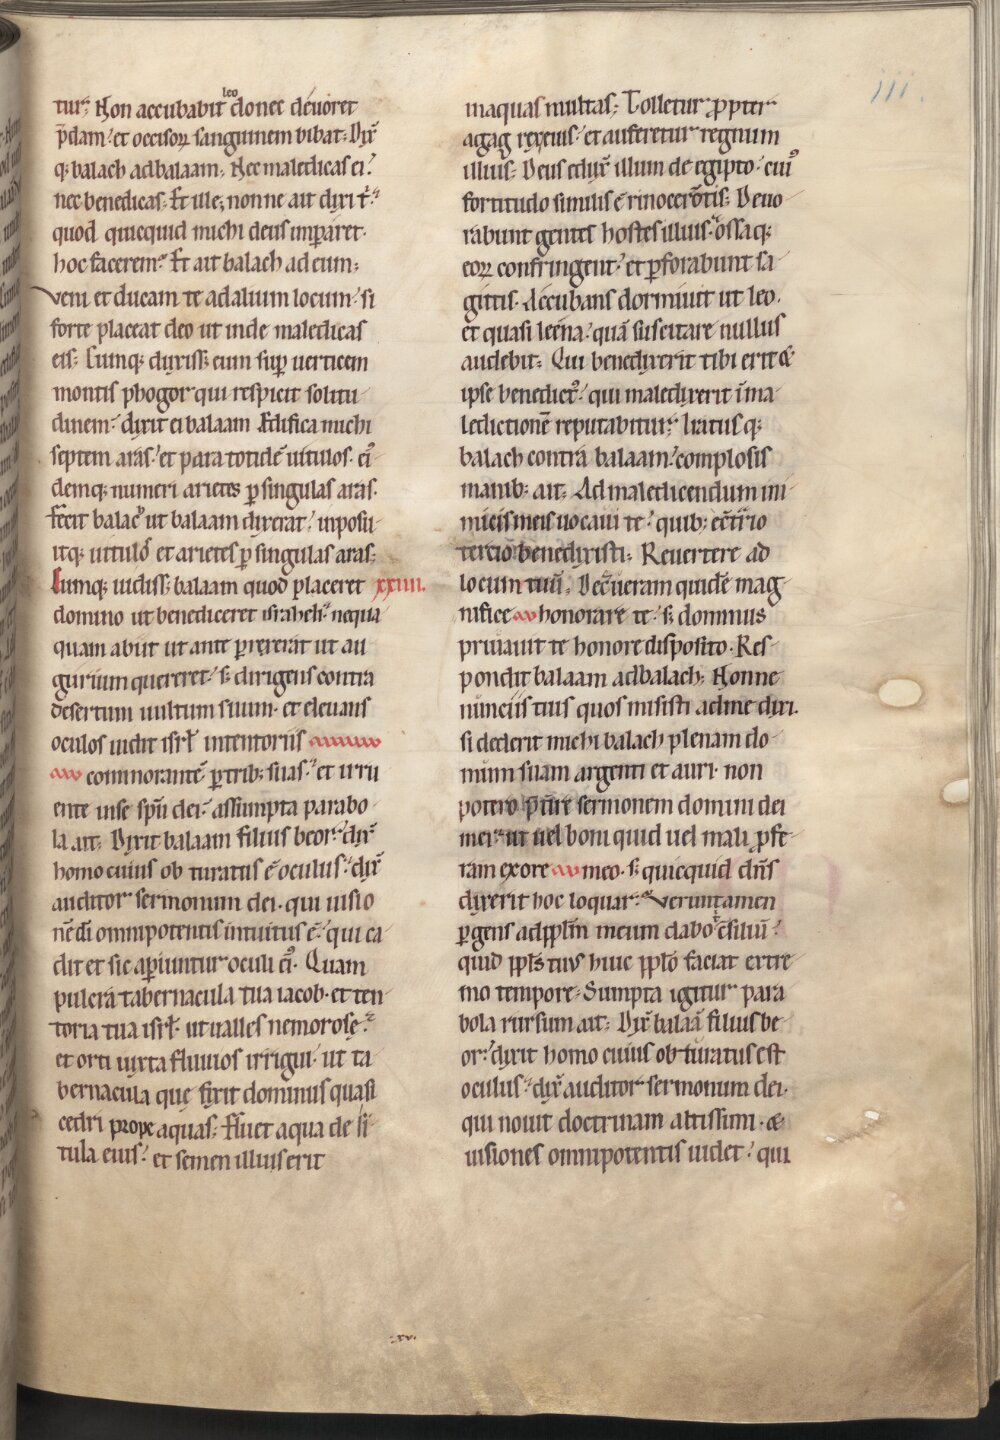 iii.
tur; Non accubabit leo donec deuoret
p̄dam; et occisoꝝ sanguinem bibat; Dix̄
q; balach ad balaam; Nec maledicas ei;
nec benedicas; Et ille; nonne ait dixi t̄
quod quicquid michi deus imparet
hoc facerem; Et ait balach ad eum;
veni et ducam te ad alium locum; si
forte placeat deo ut inde maledicas
eis; Cumq; duxiss; eum sup uerticem
montis phogor qui respicit solitu
dinem; dixit ei balaam Edifica michi
septem aras; et para totidē uitulos. ei᷒
demq; numeri arietes ꝑ singulas aras.
Fecit balac ut balaam dixerat; inposu
itq; uitulos et arietes ꝑ singulas aras;
Cumq; uidiss; balaam quod placeret xxiiii.
domino ut benediceret israheli; nequa
quam abiit ut ante ꝑrexerat ut au
gurium quereret; s; dirigens contra
desertum uultum suum. et eleuans
oculos uidit isrl̄ in tentoriis
commorantē ꝑ trib; suas; et irru
ente in se spū dei; assumpta parabo
la ait; Dixit balaam filius beor; dix̄
homo cuius obturatus ē oculus; dix̄
auditor sermonum dei. qui uisio
nē dī omnipotentis intuitus ē; qui ca
dit et sic aꝑiuntur oculi ei᷒. Quam
pulcra tabernacula tua iacob. et ten
toria tua isrl̄. ut ualles nemorosę;
et orti iuxta fluuios irrigui. ut ta
bernacula que fixit dominus quasi
cedri prope aquas; Fluet aqua de si
tula eius; et semen illius erit
in aquas multas; Tolletur ꝓpter
agag rex eius; et auferetur regnum
illius; Deus eduxit illum de egipto; cui᷒
fortitudo similis ē rinocerōtis; Deuo
rabunt gentes hostes illius. ossaq;
eoꝝ confringent; et ꝑforabunt sa
gittis. Accubans dormiuit ut leo.
et quasi leena; quā suscitare nullus
audebit; Qui benedixerit tibi erit &
ipse benedict᷒; qui maledixerit ī ma
ledictionē reputabitur; Iratus q;
balach contra balaam; complosis
manib; ait; Ad maledicendum ini
micis meis uocaui te; quib; ec̄trio
tercio benedixisti; Reuertere ad
locum tuū; Decreueram quidē mag
nifice honorare te; s; dominus
priuauit te honore disposito. Res
pondit balaam ad balach; Nonne
nunciis tuis quos misisti ad me dixi.
si dederit michi balach plenam do
mum suam argenti et auri. non
potero p̄tire sermonem domini dei
mei; ut uel boni quid uel mali ꝓfe
ram ex ore meo. s; quicquid dn̄s
dixerit hoc loquar; Veruntamen
ꝑgens ad pplm̄ meum dabo c̄siliū;
quid ppls̄ tuus huic pplo faciat extre
mo tempore; Sumpta igitur para
bola rursum ait; Dix̄ balaā filius be
or; dixit homo cuius obturatus est
oculus; dix̄ auditor sermonum dei.
qui nouit doctrinam altissimi. &
uisiones omnipotentis uidet; qui
.xv.